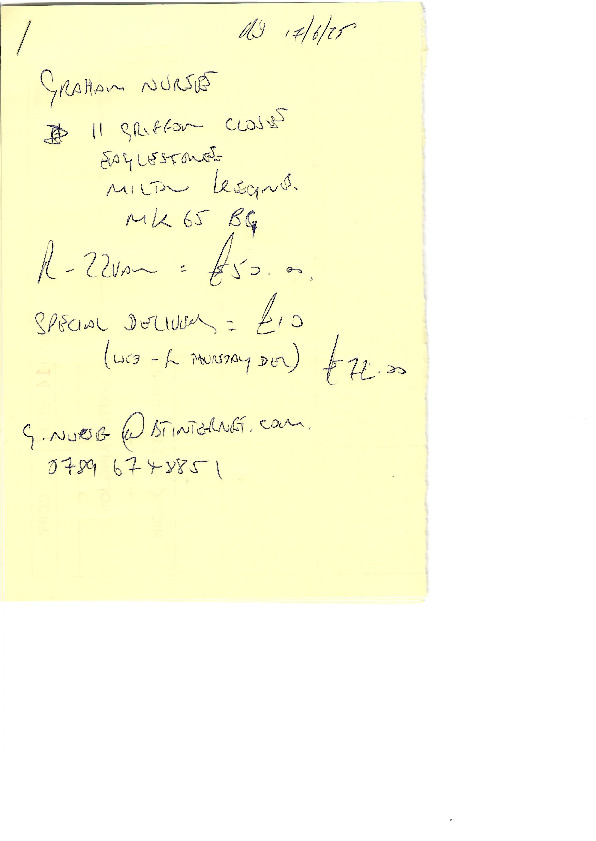 / 17/6/25
GRAHAM NURSE
11 GRIFFON CLOSE
EAGLESTONE
MILTON KEYNES
MK 65 BG
R-22 = £50.00.
SPECIAL DELIVERY = £10
(WED - THURSDAY DEL) £72.00
G.NURSE@BTINTERNET.COM.
0789 6748851